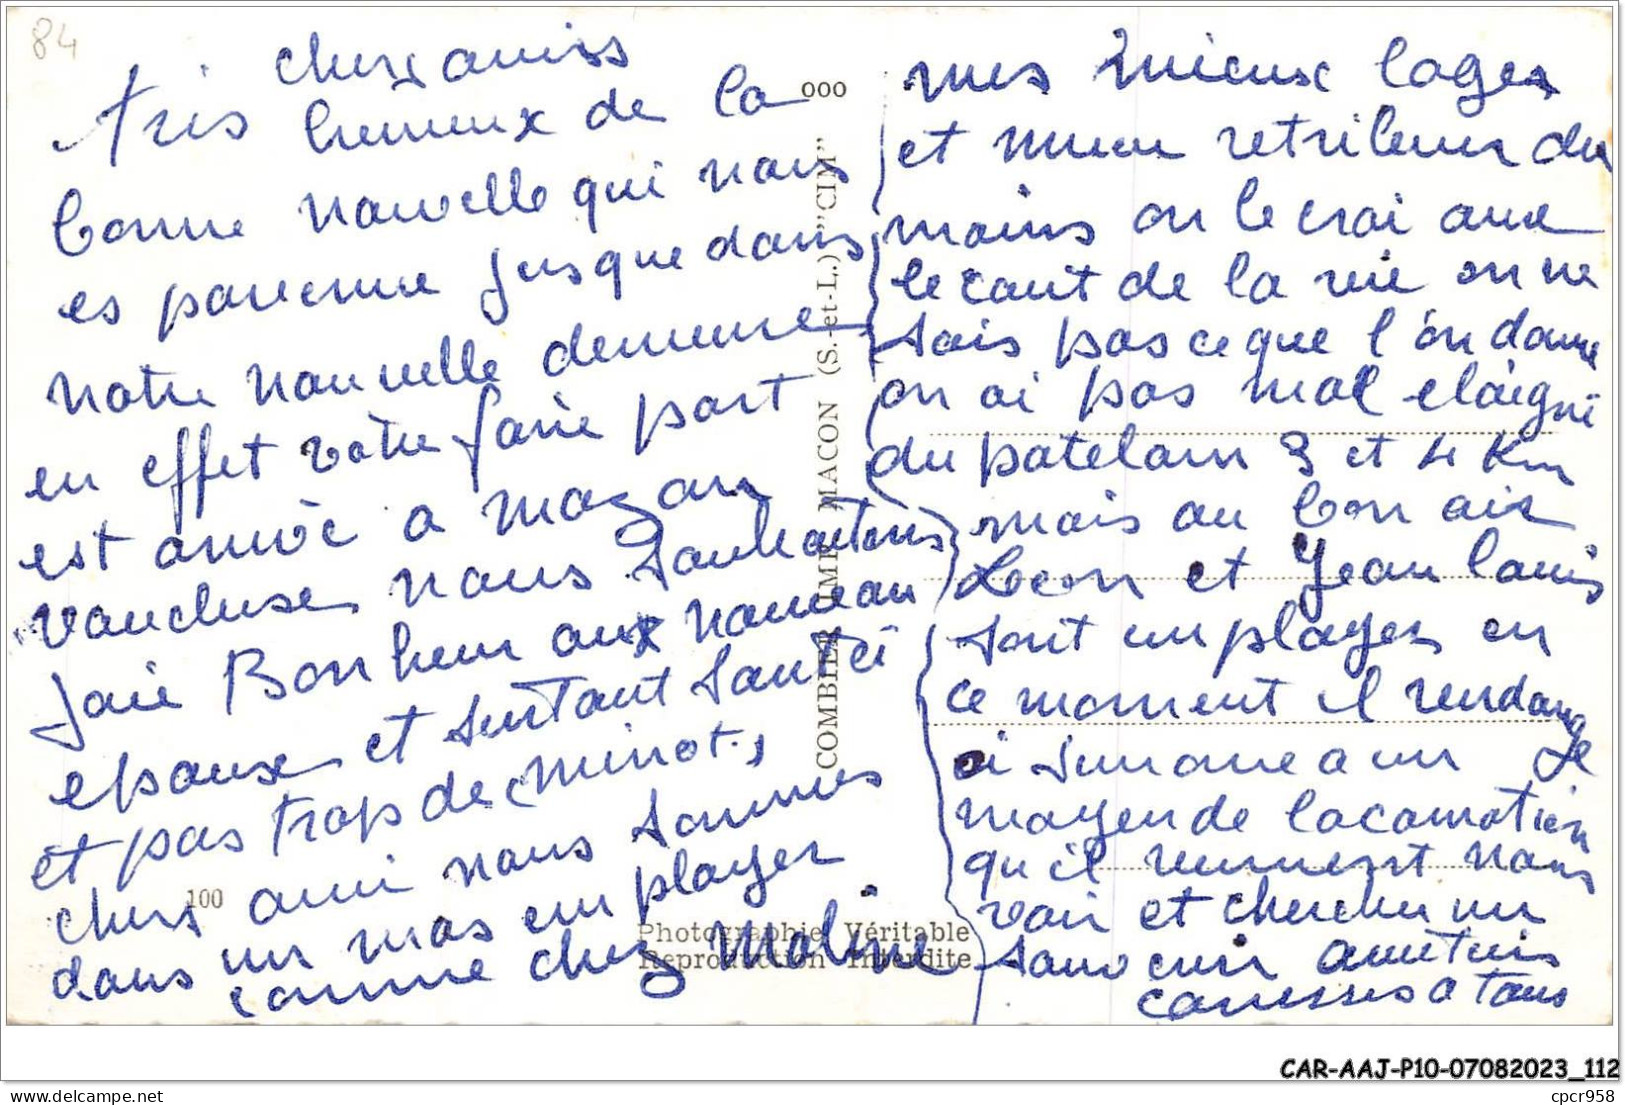 84
chers amis
très heureux de la
bonne nouvelle qui nous
es parvenue jusque dans
notre nouvelle demeure
en effet votre faire part
est arrivé a mazan
vaucluse nous souhaitons
Joie Bonheur aux nouveau
epoux et surtout santé
et pas trop de minots,
chers ami nous sommes
dans un mas employer
comme chez Moline
100
ooo
COMBIER IMP. MACON (S.-et-L.) "CIM"
Photographie Véritable
Reproduction Interdite
mes mieux loger
et mieu retribuer du
moins on le croi avec
le cout de la vie on ne
sais pas ce que l'on donne
on ai pas mal eloigné
du patelain 3 et 4 Km
mais au bon air
Leon et Jean louis
sont employer en
ce moment il vendange
si Simone a un
moyen de locomotion
qu'il viennent nous
voir et chercher un
souvenir amitiés
caresses a tous
CAR-AAJ-P10-07082023_112
cpcr958